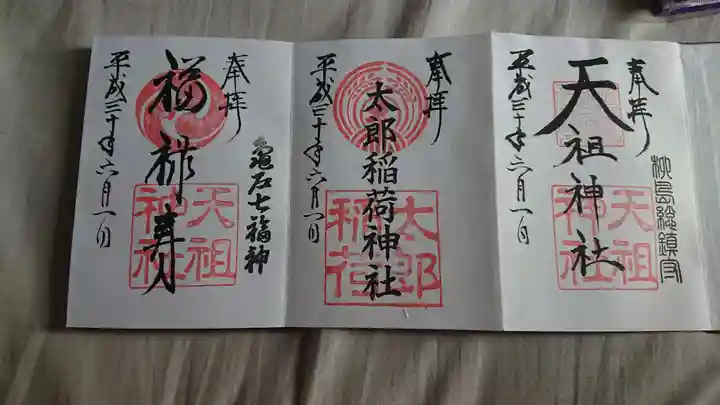 奉拝
柳島総鎮守
天祖神社
天祖神社
平成三十年六月一日
奉拝
太郎稲荷神社
太郎稲荷
平成三十年六月一日
奉拝
亀戸七福神
福禄寿
天祖神社
平成三十年六月一日